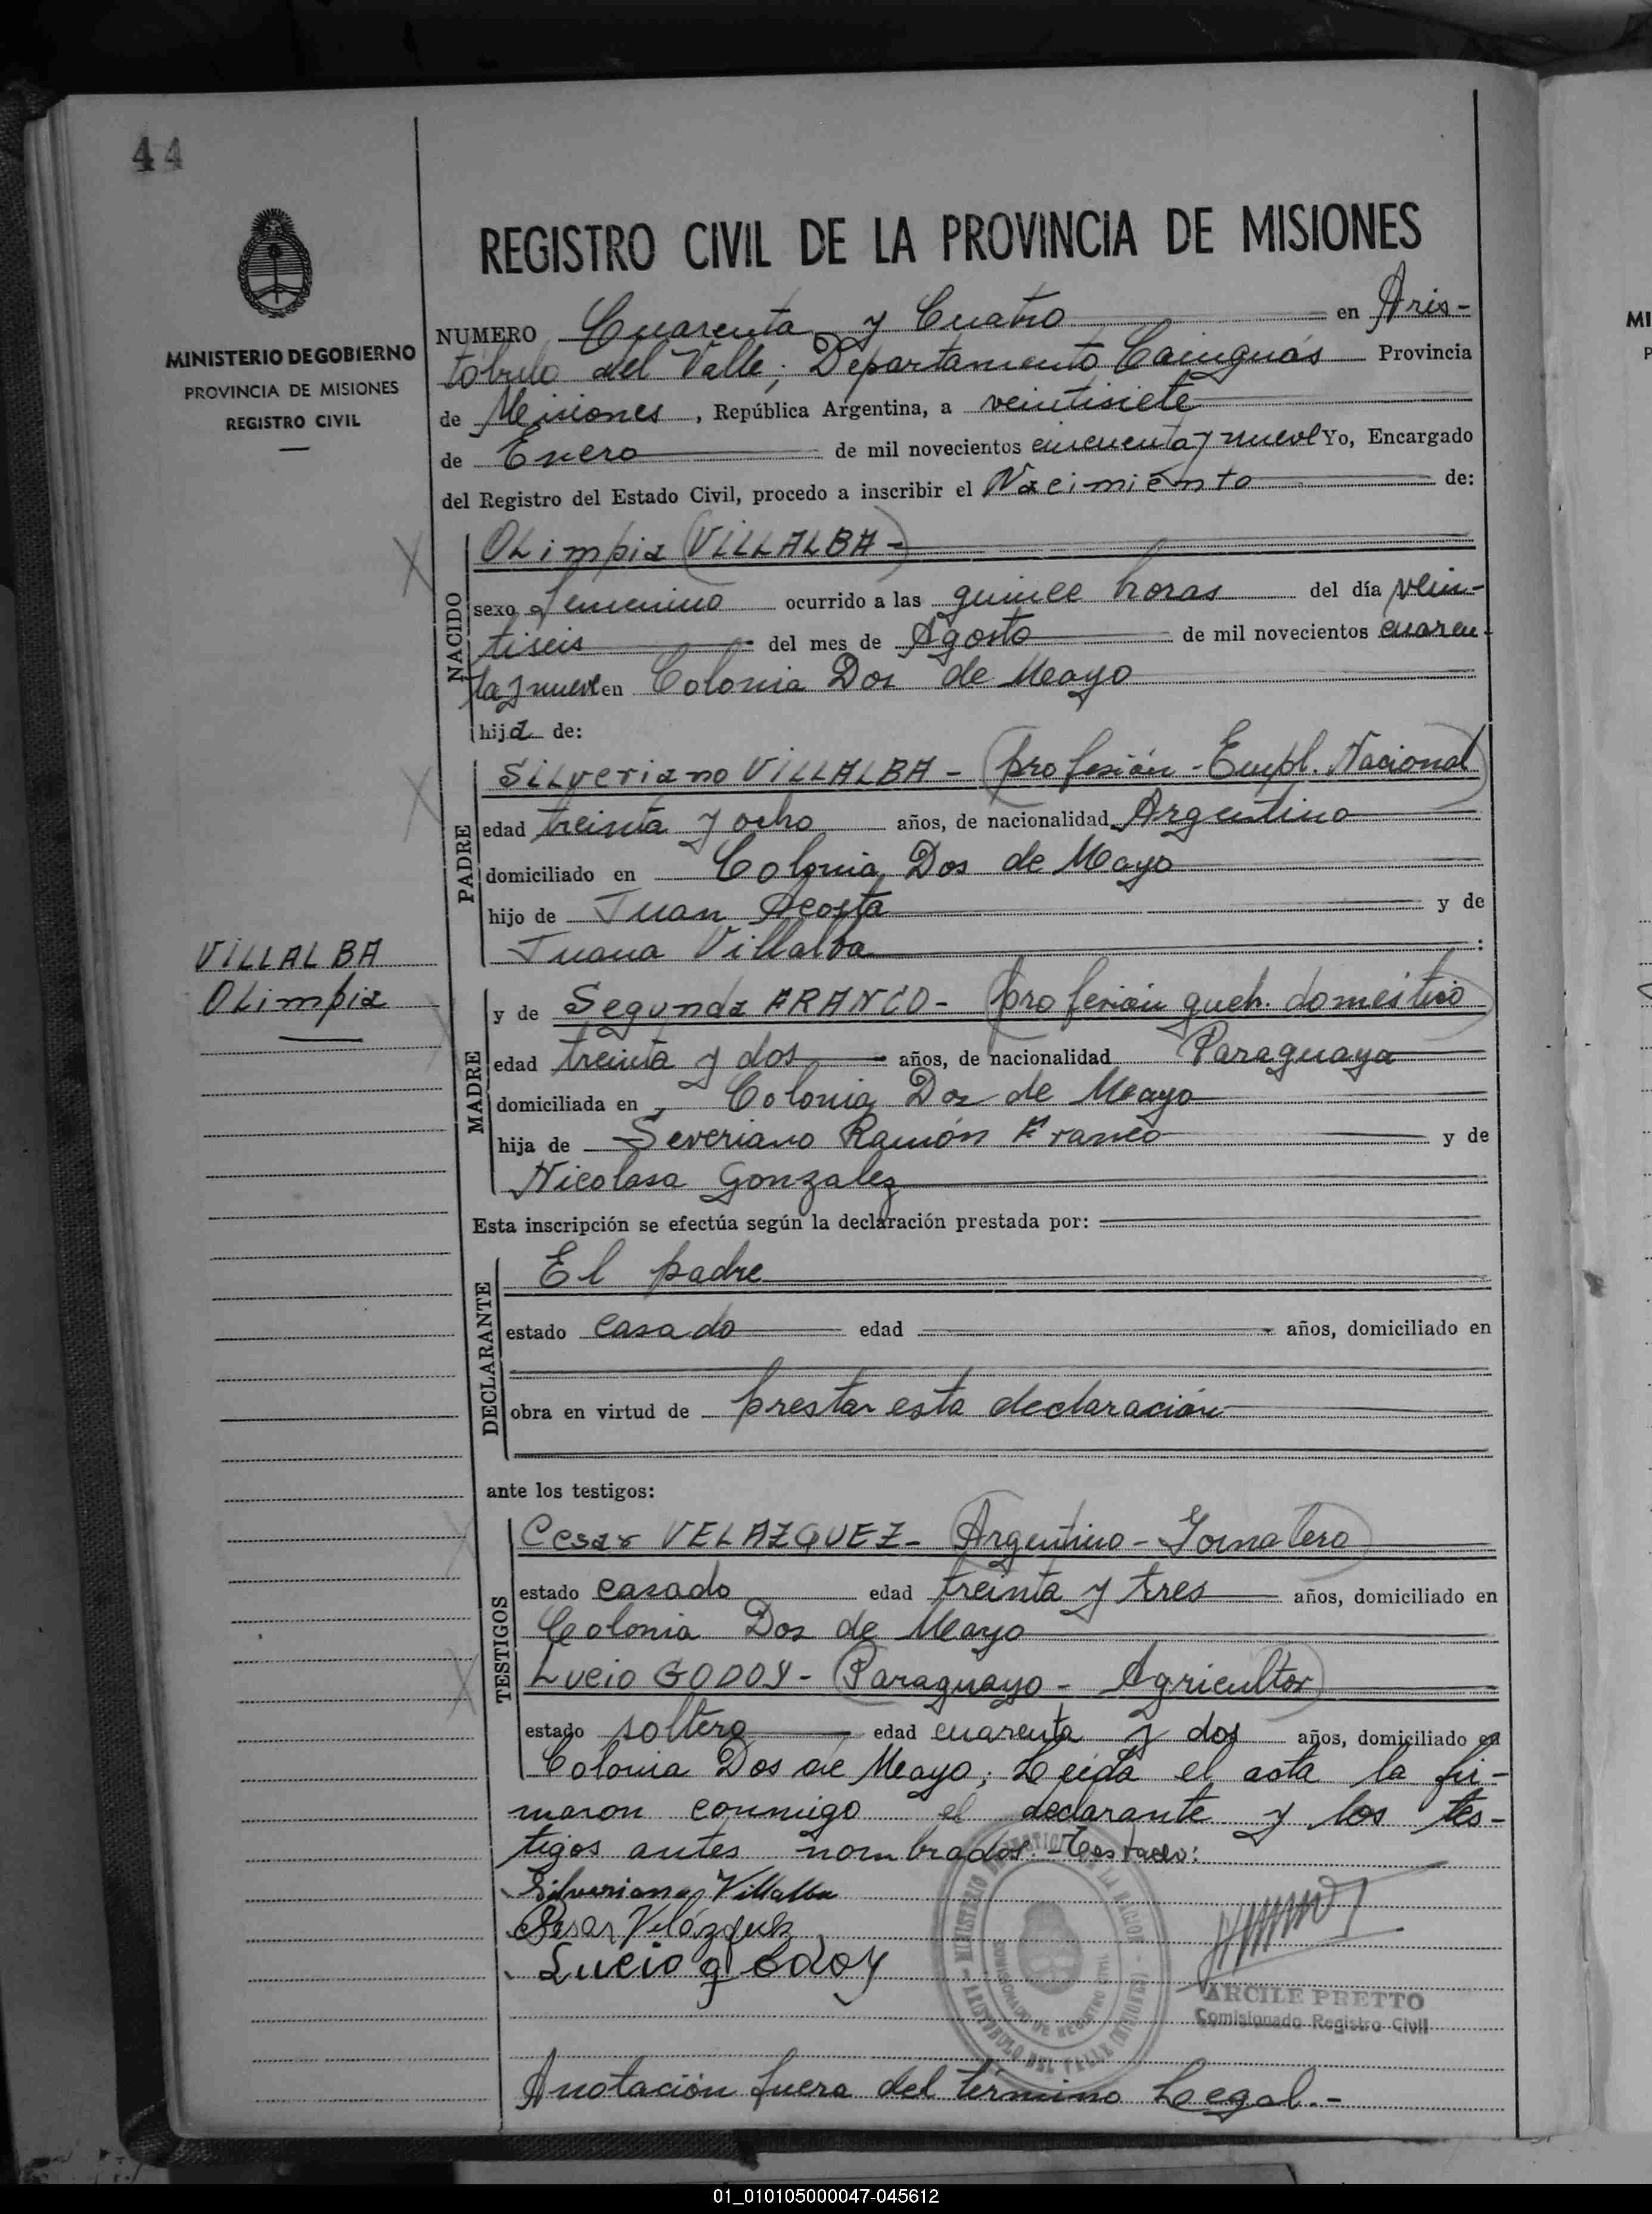 44
MINISTERIO DE GOBIERNO
PROVINCIA DE MISIONES
REGISTRO CIVIL
REGISTRO CIVIL DE LA PROVINCIA DE MISIONES
NUMERO Cuarenta y Cuatro en Aris-
tóbulo del Valle; Departamento Cainguás Provincia
de Misiones, República Argentina, a veintisiete
de Enero de mil novecientos cincuenta y nueve Yo, Encargado
del Registro del Estado Civil, procedo a inscribir el Nacimiento de:
NACIDO
Olimpia (VILLALBA-)
sexo femenino ocurrido a las quince horas del día vein-
tiseis del mes de Agosto de mil novecientos cuaren-
ta y nueve en Colonia Dos de Mayo
hija de:
PADRE
Silveriano VILLALBA - (profesión - Empl. Nacional)
edad treinta y ocho años, de nacionalidad Argentino
domiciliado en Colonia Dos de Mayo
hijo de Juan Acosta y de
Juana Villalba :
VILLALBA
Olimpia
MADRE
y de Segunda FRANCO - (profesión queh. domestico)
edad treinta y dos años, de nacionalidad Paraguaya
domiciliada en Colonia Dos de Mayo
hija de Severiano Ramón Franco y de
Nicolasa Gonzalez
Esta inscripción se efectúa según la declaración prestada por:
DECLARANTE
El padre
estado casado edad años, domiciliado en
obra en virtud de prestar esta declaración
ante los testigos:
TESTIGOS
Cesar VELAZQUEZ - (Argentino - Jornalero)
estado casado edad treinta y tres años, domiciliado en
Colonia Dos de Mayo
Lucio GODOY - (Paraguayo - Agricultor)
estado soltero edad cuarenta y dos años, domiciliado en
Colonia Dos de Mayo; Leída el acta la fir-
maron conmigo el declarante y los tes-
tigos antes nombrados.-
Silveriano Villalba
Cesar Velázquez
Lucio godoy
ARCILE PRETTO
Comisionado Registro Civil
Anotación fuera del término Legal.-
01_010105000047-045612